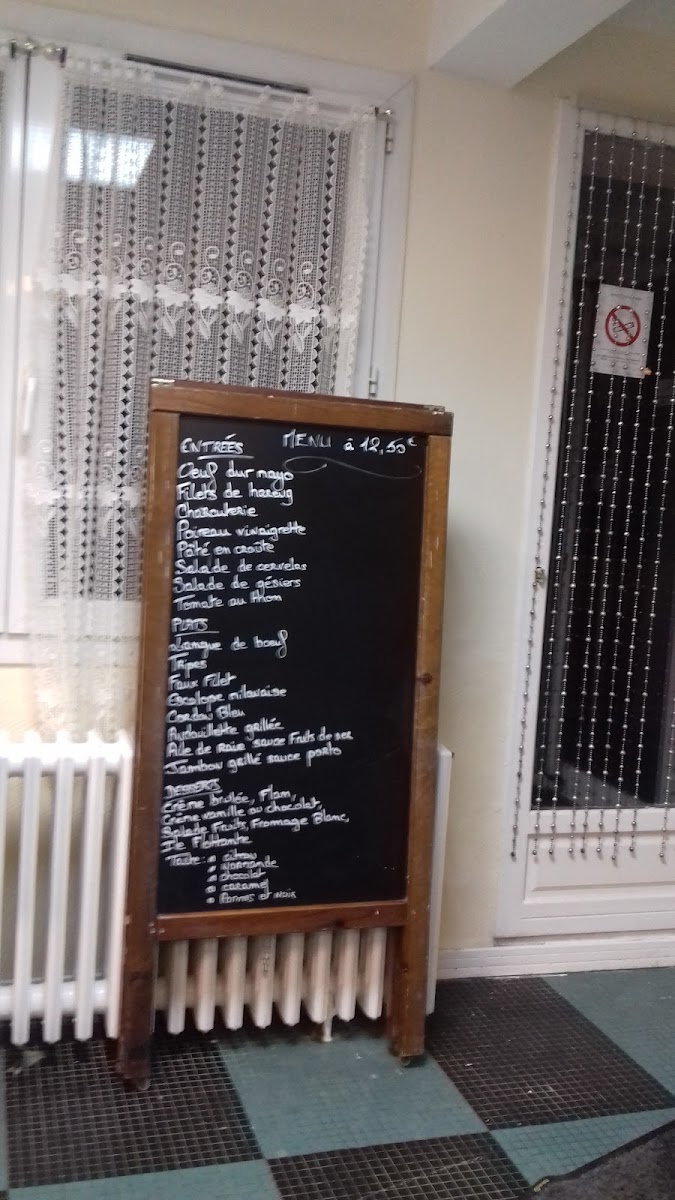 ENTRÉES MENU à 12,50€
Oeuf dur mayo
Filets de hareng
Charcuterie
Poireau vinaigrette
Pâté en croûte
Salade de cervelas
Salade de gésiers
Tomate au thon
PLATS
Langue de boeuf
Tripes
Faux Filet
Escalope milanaise
Cordon Bleu
Andouillette grillée
Aile de raie sauce Fruits de mer
Jambon grillé sauce porto
DESSERTS
Crème brulée, Flam,
Crème vanille ou chocolat,
Salade Fruits, Fromage Blanc,
Ile Flottante
Tarte: citron
normande
chocolat
caramel
Pommes et noix